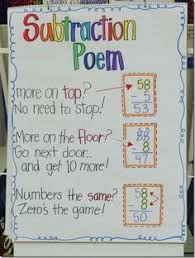 Subtraction
Poem
more on top?
No need to stop!
58
- 5
53
More on the floor?
Go next door...
and get 10 more!
- 8
47
Numbers the same?
Zero's the game!
58
- 8
50